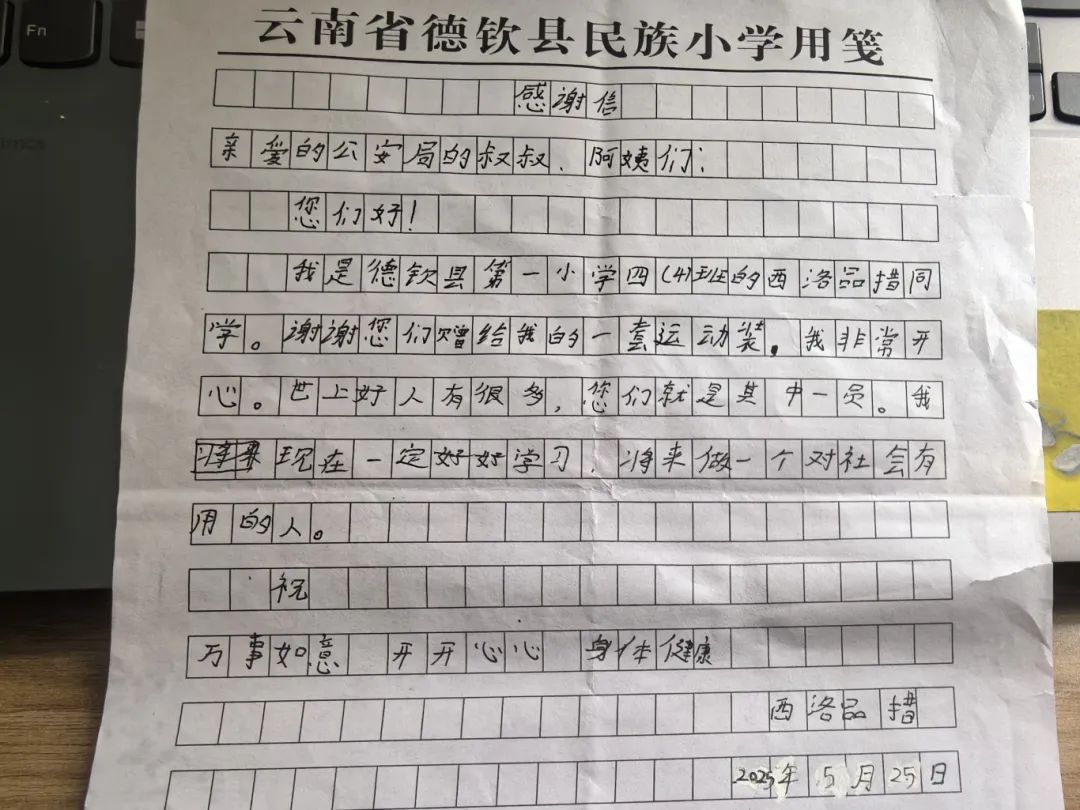 云南省德钦县民族小学用笺
感谢信
亲爱的公安局的叔叔、阿姨们:
您们好!
我是德钦县第一小学四(4)班的西洛品措同
学。谢谢您们赠给我的一套运动装。我非常开
心。世上好人有很多,您们就是其中一员。我
现在一定好好学习,将来做一个对社会有
用的人。
祝
万事如意 开开心心 身体健康
西洛品措
2025年5月25日
Fn